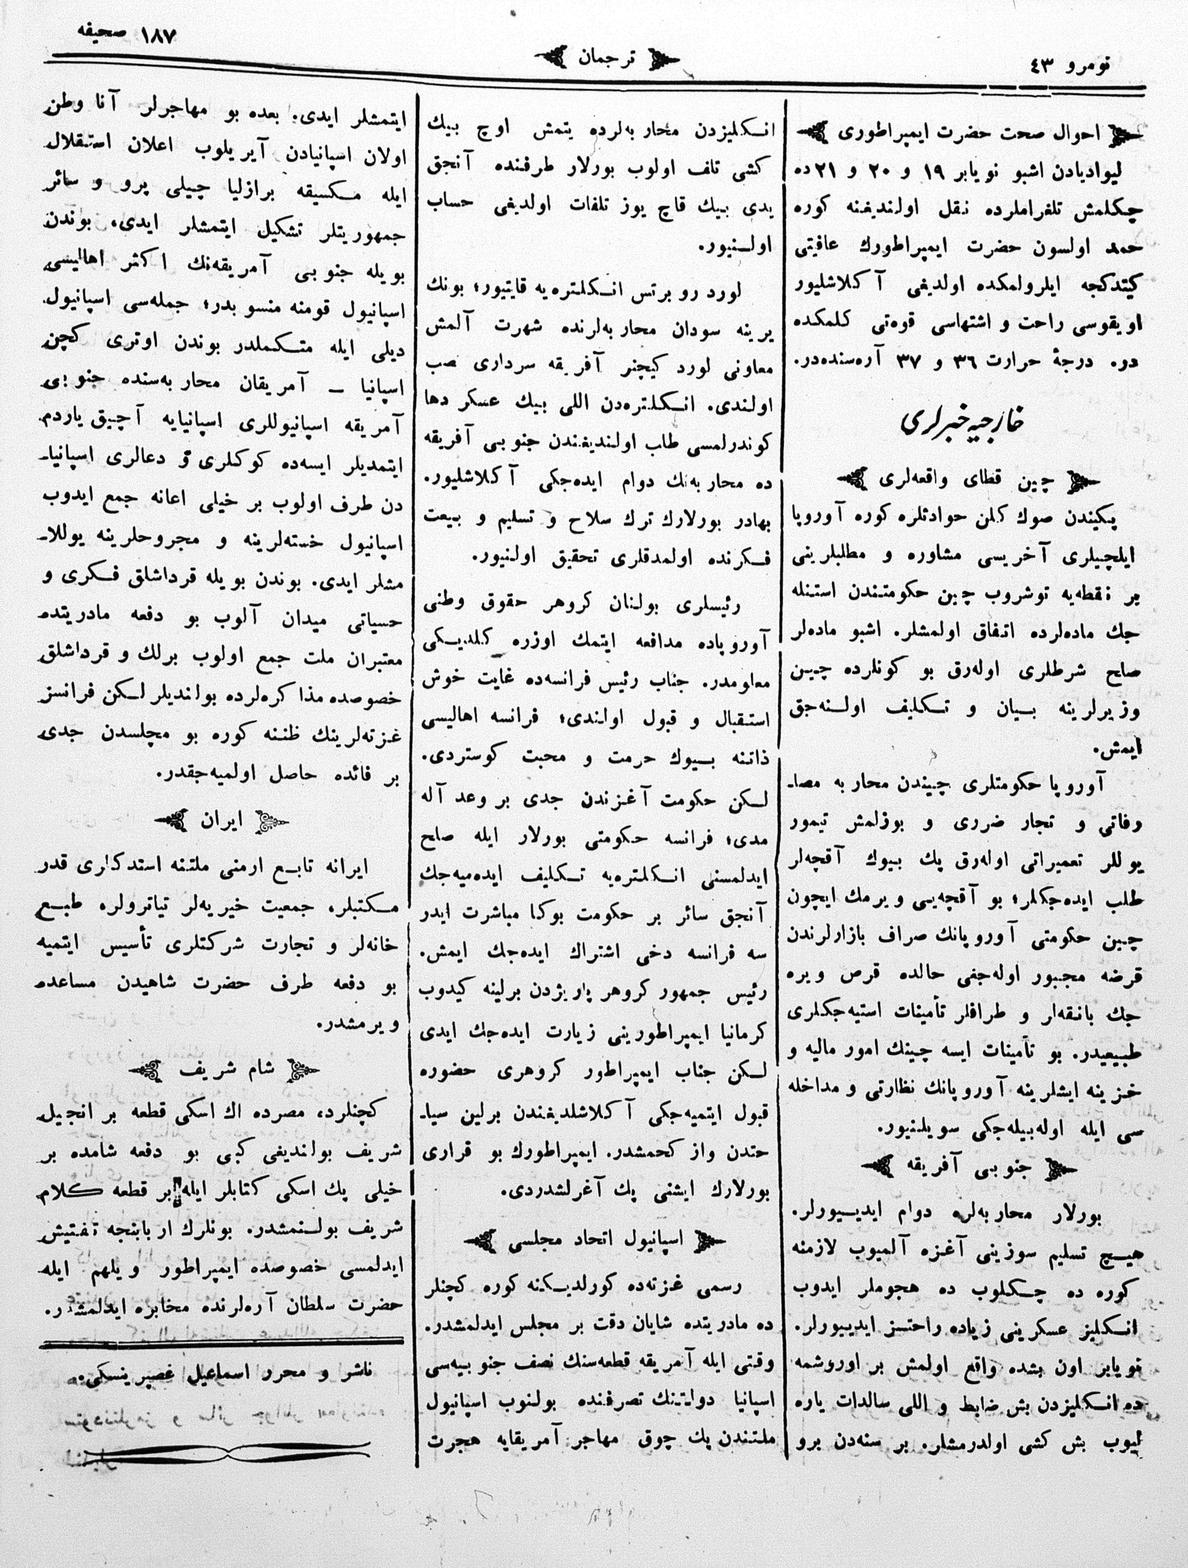 نومرو ٤٣
ترجمان
١٨٧ صحيفه
احوال صحت حضرت ايمپراطورى
ليواديادن اشبو نويابر ١٩ و ٢٠ و ٢١ ده
چكلمش تلغراملرده نقل اولنديغنه كوره
حمد اولسون حضرت ايمپراطورك عافيتى
كيتدكجه ايلرولمكده اولديغى آكلاشليور
اويقوسى راحت و اشتهاسى قوهتى كلمكده
دو. درجهٔ حرارت ٣٦ و ٣٧ آره‌سنده‌در.
خارجيه خبرلرى
چين قطاى واقعه‌لرى
پكيندن صوك كلن حوادثلره كوره آوروپا
ايلچيلرى آخريسى مشاوره و مطلبلرينى
بر نقطه‌يه توشروب چين حكومتندن استنله
جك ماده‌لرده اتفاق اولمشلر. اشبو ماده‌لر
صلح شرطلرى اوله‌رق بو كونلرده چين
وزيرلرينه بيان و تكليف اولنه‌جق
ايمش.
آوروپا حكومتلرى چيندن محاربه مصا‍ـ
رفاتى و تجار ضررى و بوزلمش تيمور
يوللر تعميراتى اوله‌رق پك بيوك آقچه‌لر
طلب ايده‌جكلر؛ بو آقچه‌يى ويرمك ايچون
چين حكومتى آوروپانك صراف بازارلرندن
قرضه مجبور اوله‌جغى حالده قرص ويره
جك بانقه‌لر و طرافلر تأمينات استيه‌جكلرى
طبيعيدر. بو تأمينات ايسه چينك امور ماليه و
خزينه ايشلرينه آوروپانك نظارتى و مداخله
سى ايله اوله‌بيله‌جكى سويلنيور.
جنوبى آفريقه
بورلار محاربه‌لره دوام ايديورلر.
هيچ تسليم سوزينى آغزه آلميوب لازمنه
كوره ده چكلوب ده هجوملر ايدوب
انكليز عسكرينى زياده راحتسز ايديورلر.
نويابر اون بشده واقع اولمش بر اوروشمه
ده انكليزدن بش ضابط و اللى سالدات ياره
ليوب بش كشى اولدرمشلر. بر سنه‌دن برو
انكليزدن محاربه‌لرده يتمش اوچ بيك
كشى تلف اولوب بورلار طرفنده آنجق
يدى بيك قاچ يوز تلفات اولديغى حساب
اولنيور.
لورد روبرتس انكلتره‌يه قايتيور؛ بونك
يرينه سودان محاربه‌لرنده شهرت آلمش
معاونى لورد كيچنر آفريقه سردارى نصب
اولندى. انكلتره‌دن اللى بيك عسكر دها
كوندرلمسى طلب اولنديغندن جنوبى آفريقه
ده محاربه‌نك دوام ايده‌جكى آكلاشليور.
بهادر بورلارك ترك سلاح و تسليم و بيعت
فكرنده اولمدقلرى تحقيق اولنيور.
رئيسلرى بولنان كروهر حقوق وطنى
آوروپاده مدافعه ايتمك اوزره كلديكى
معلومدر. جناب رئيس فرانسه‌ده غايت خوش
استقبال و قبول اولندى؛ فرانسه اهاليسى
ذاتنه بيوك حرمت و محبت كوستردى.
لكن حكومت آغزندن جدى بر وعد آله
مدى؛ فرانسه حكومتى بورلار ايله صلح
ايدلمسنى انكلتره‌يه تكليف ايده‌ميه‌جك
آنجق سائر بر حكومت بوكا مباشرت ايدر
سه فرانسه دخى اشتراك ايده‌جك ايمش.
رئيس جمهور كروهر پاريژدن برلينه كيدوب
كرمانيا ايمپراطورينى زيارت ايده‌جك ايدى
لكن جناب ايمپراطور كروهرى حضوره
قبول ايتميه‌جكى آكلاشلديغندن برلين سيا‍ـ
حتدن واز كحمشدر. ايمپراطورك بو قرارى
بورلارك ايشنى پك آغرلشدردى.
اسپانيول اتحاد مجلسى
رسمى غزته‌ده كورلديكنه كوره كچنلر
ده مادريتده شايان دقت بر مجلس ايدلمشدر.
وقتى ايله آمريقه قطعه‌سنك نصف جنوبيه‌سى
اسپانيا دولتنك تصرفنده بولنوب اسپانيول
ملتندن پك چوق مهاجر آمريقايه هجرت
ايتمشلر ايدى. بعده بو مهاجرلر آنا وطن
اولان اسپانيادن آيريلوب اعلان استقلال
ايله مكسيقه برازليا چيلى پرو و سائر
جمهوريتلر تشكيل ايتمشلر ايدى. بوندن
بويله جنوبى آمريقه‌نك اكثر اهاليسى
اسپانيول قومنه منسوبدر؛ جمله‌سى اسپانيول
ديلى ايله متكلمدر بوندن اوترى كچن
اسپانيا ـ آمريقان محاربه‌سنده جنوبى
آمريقه اسپانيوللرى اسپانيايه آچيق ياردم
ايتمديلر ايسه‌ده كوكلرى و دعالرى اسپانيا‍ـ
دن طرف اولوب بر خيلى اعانه جمع ايدوب
اسپانيول خسته‌لرينه و مجروحلرينه يوللا‍ـ
مشلر ايدى. بوندن بويله قرداشلق فكرى و
حسياتى ميدان آلوب بو دفعه مادريتده
معتبران ملت جمع اولوب برلك و قرداشلق
خصوصده مذاكره‌لرده بولنديلر لكن فرانسز
غزته‌لرينك ظننه كوره بو مجلسدن جدى
بر فائده حاصل اولميه‌جقدر.
ايران
ايرانه تابع ارمنى ملتنه استدكلرى قدر
مكتبلر، جمعيت خيريه‌لر تياترولر، طبع
خانه‌لر و تجارت شركتلرى تأسيس ايتميه
بو دفعه طرف حضرت شاهيدن مساعده
ويرمشدر.
شام شريف
كچنلرد، مصرده اك اسكى قطعه بر انجيل
شريف بولنديغى كبى بو دفعه شامده بر
خيلى پك اسكى كتابلر ايله بر قطعه كلام
شريف بولنمشدر. بونلرك اربابنجه تفتيش
ايدلمسى خصوصده ايمپراطور ويلهم ايله
حضرت سلطان آره‌لرنده مخابره ايدلمشدر.
ناشر و محرر اسماعيل غصپرينسكى.